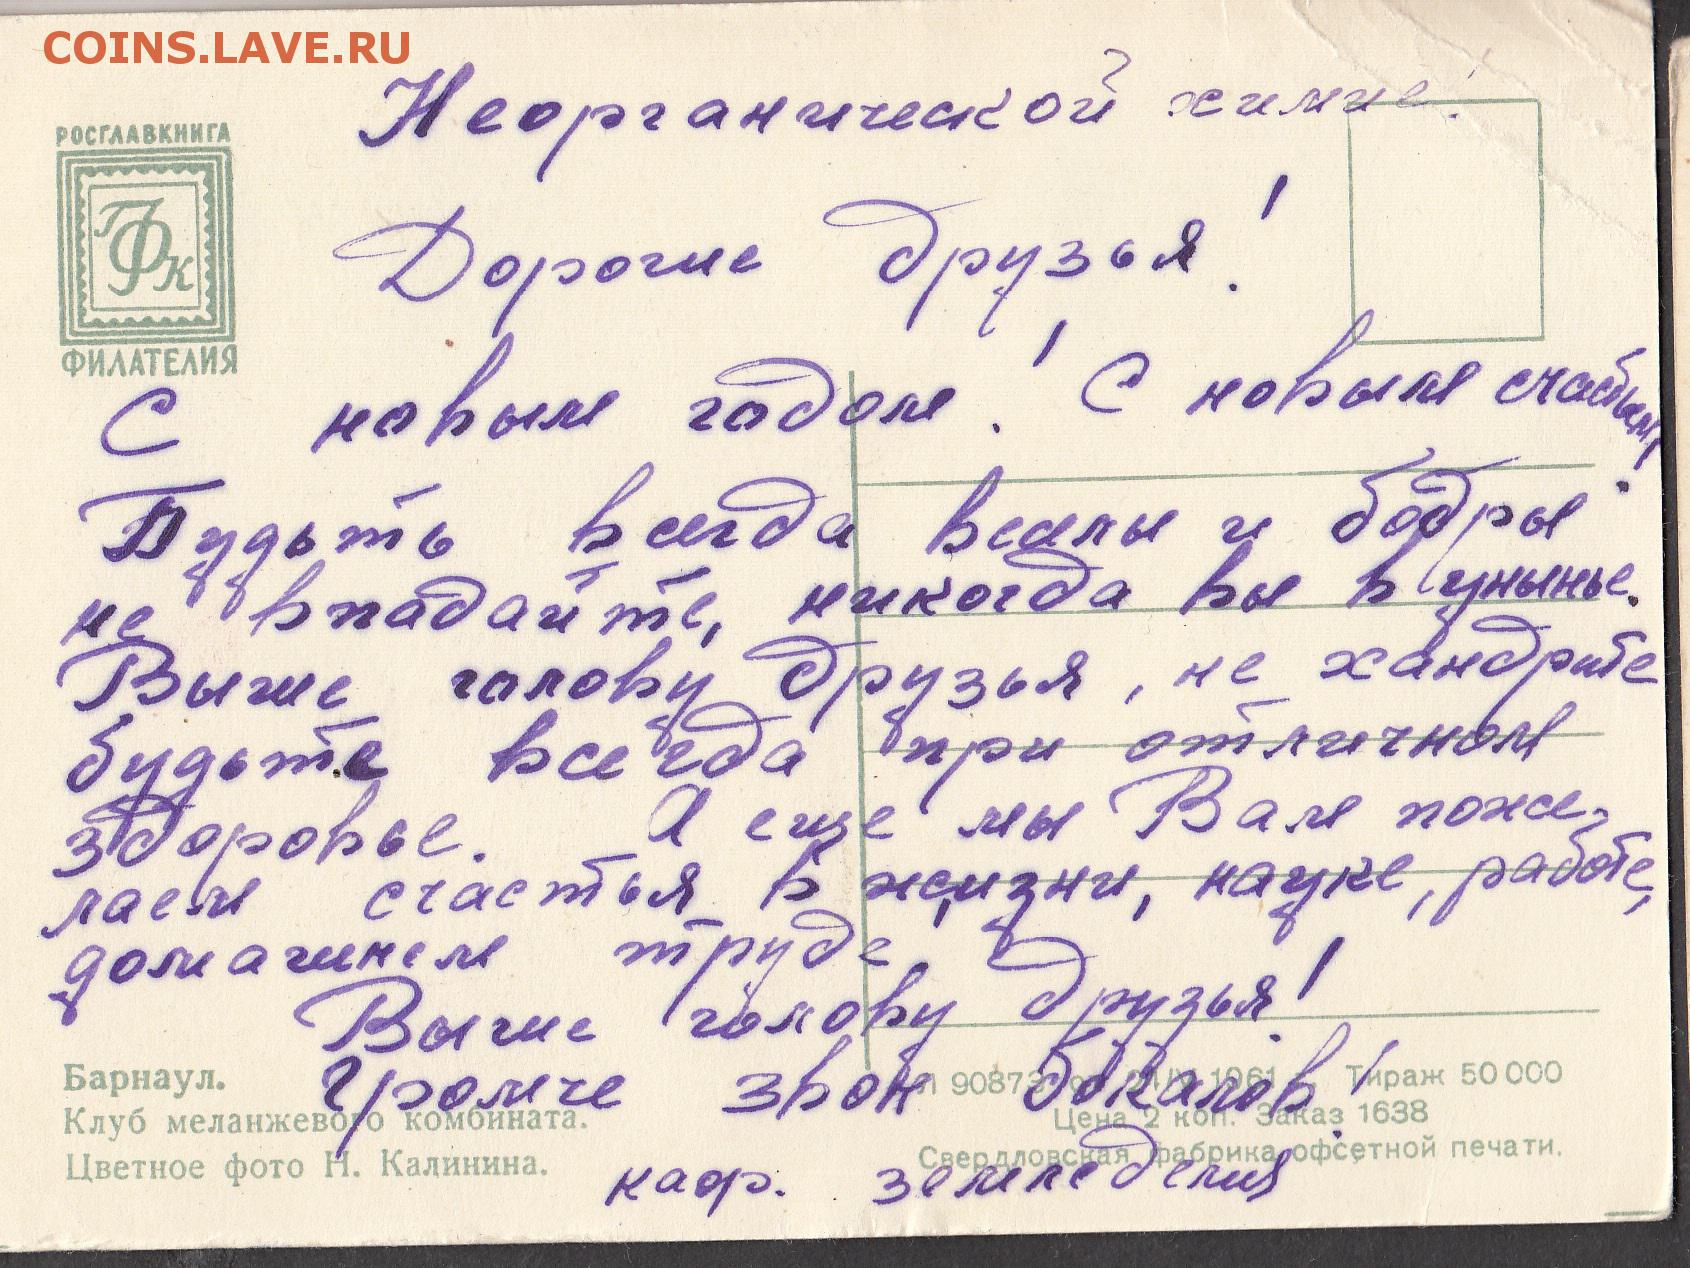 COINS.LAVE.RU
Неорганической химие.
РОСГЛАВКНИГА
ГФК
ФИЛАТЕЛИЯ
Дорогие друзья!
С новым годом! С новым счастьем!
Будьть всегда веселы и бодры
не впадайте, никогда вы в унынье.
Выше голову друзья, не хандрите
будьте всегда при отличном
здоровье. А еще мы Вам поже-
лаем счастья в жизни, науке, работе,
домашнем труде.
Выше голову друзья!
Громче звон бокалов!
каф. земледелия
Барнаул.
Клуб меланжевого комбината.
Цветное фото Н. Калинина.
Л 90873 от 1961 Тираж 50 000
Цена 2 коп. Заказ 1638
Свердловская фабрика офсетной печати.